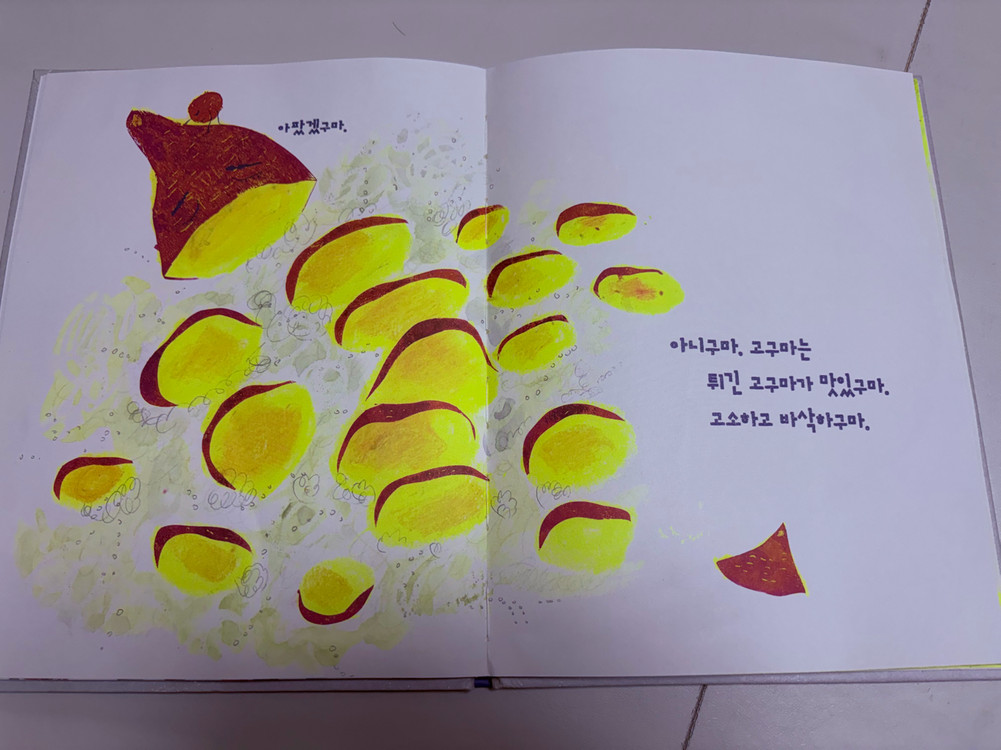 아팠겠구마.
아니구마. 고구마는
튀긴 고구마가 맛있구마.
고소하고 바삭하구마.